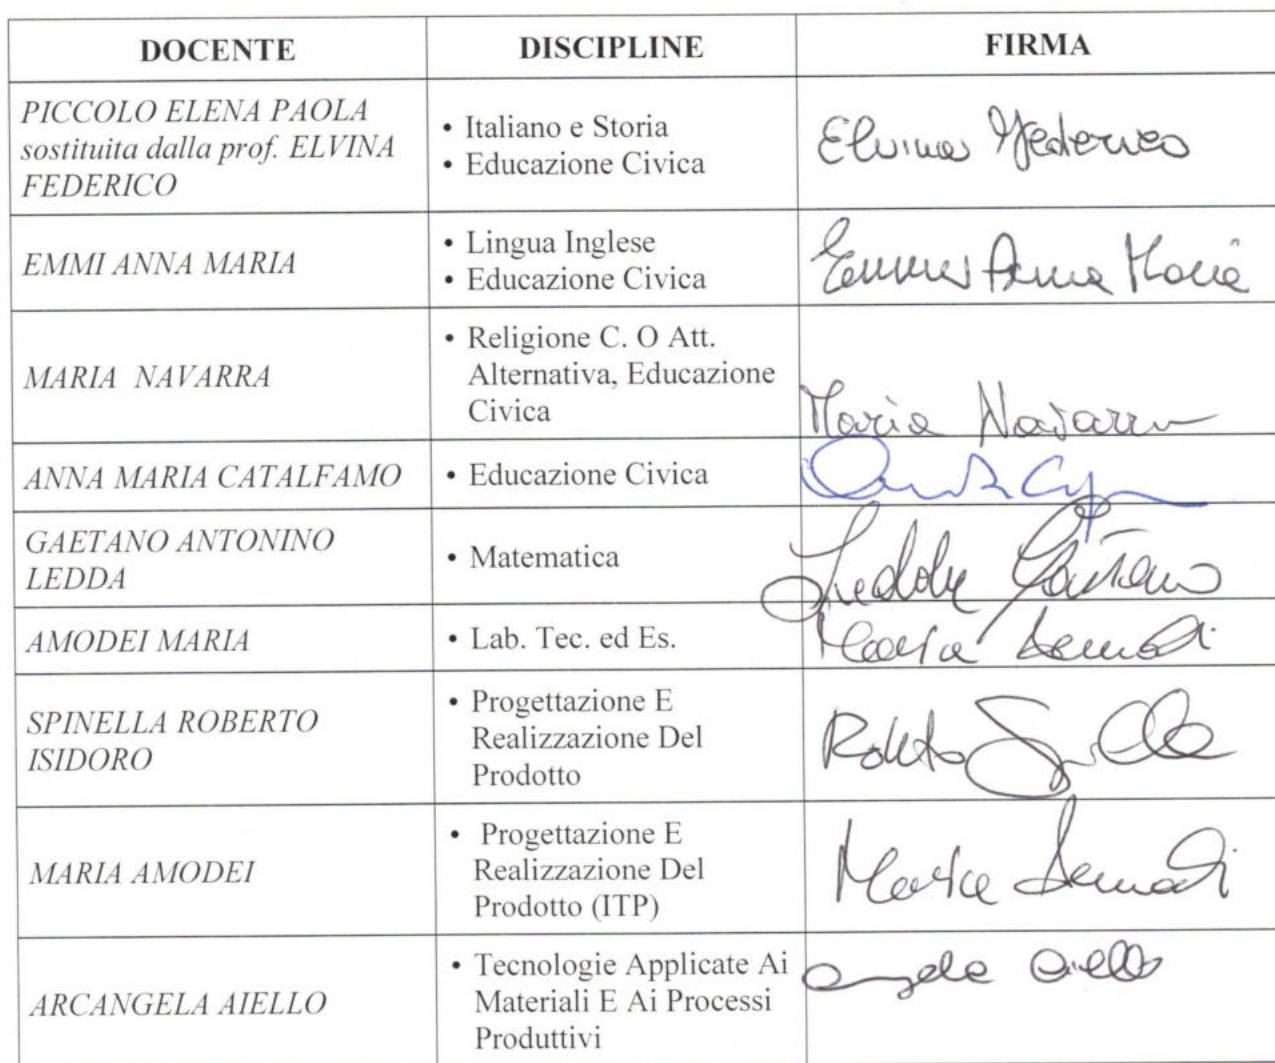 DOCENTE DISCIPLINE FIRMA
PICCOLO ELENA PAOLA
sostituita dalla prof. ELVINA
FEDERICO
• Italiano e Storia
• Educazione Civica
Elvina Federico
EMMI ANNA MARIA
• Lingua Inglese
• Educazione Civica
Emmi Anna Maria
MARIA NAVARRA
• Religione C. O Att.
Alternativa, Educazione
Civica
Maria Navarra
ANNA MARIA CATALFAMO
• Educazione Civica
GAETANO ANTONINO
LEDDA
• Matematica
Ledda Gaetano
AMODEI MARIA
• Lab. Tec. ed Es.
Maria Amodei
SPINELLA ROBERTO
ISIDORO
• Progettazione E
Realizzazione Del
Prodotto
Roberto Spinella
MARIA AMODEI
• Progettazione E
Realizzazione Del
Prodotto (ITP)
Maria Amodei
ARCANGELA AIELLO
• Tecnologie Applicate Ai
Materiali E Ai Processi
Produttivi
Angela Aiello